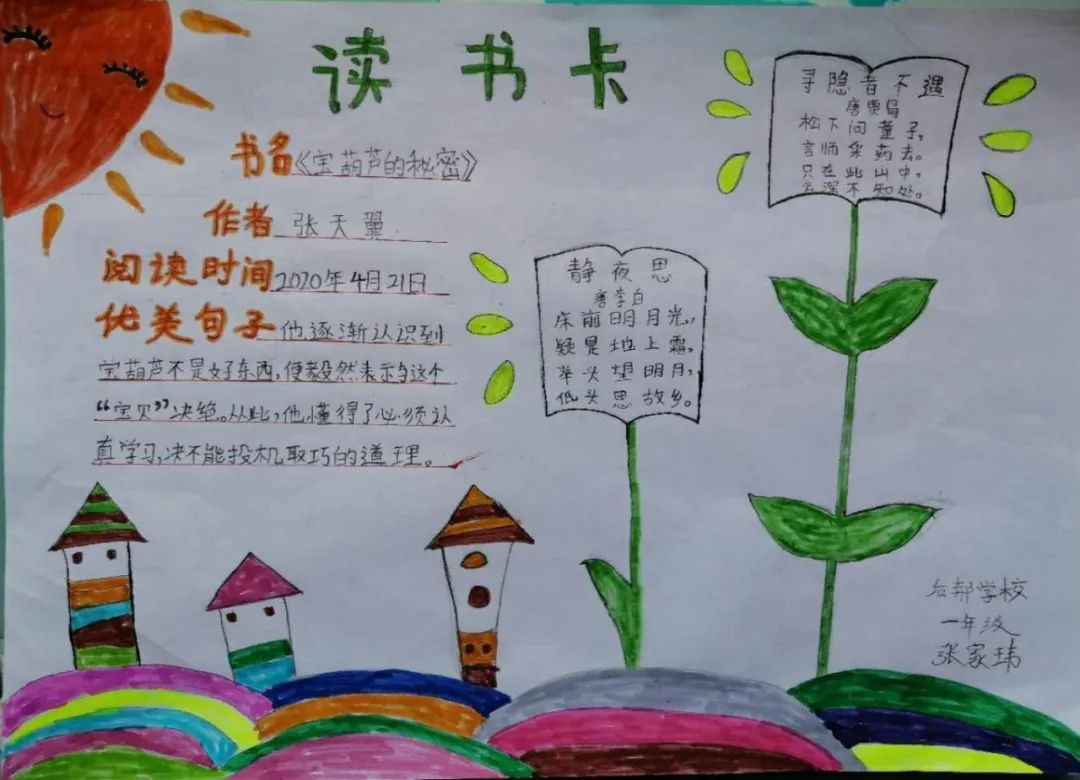 读书卡
书名《宝葫芦的秘密》
作者 张天翼
阅读时间 2020年4月21日
优美句子 他逐渐认识到
宝葫芦不是好东西,便毅然表示与这个
“宝贝”决绝。从此,他懂得了必须认
真学习,决不能投机取巧的道理。
静夜思
唐李白
床前明月光,
疑是地上霜,
举头望明月,
低头思故乡。
寻隐者不遇
唐贾岛
松下问童子,
言师采药去。
只在此山中,
云深不知处。
邦学校
一年级
张家玮